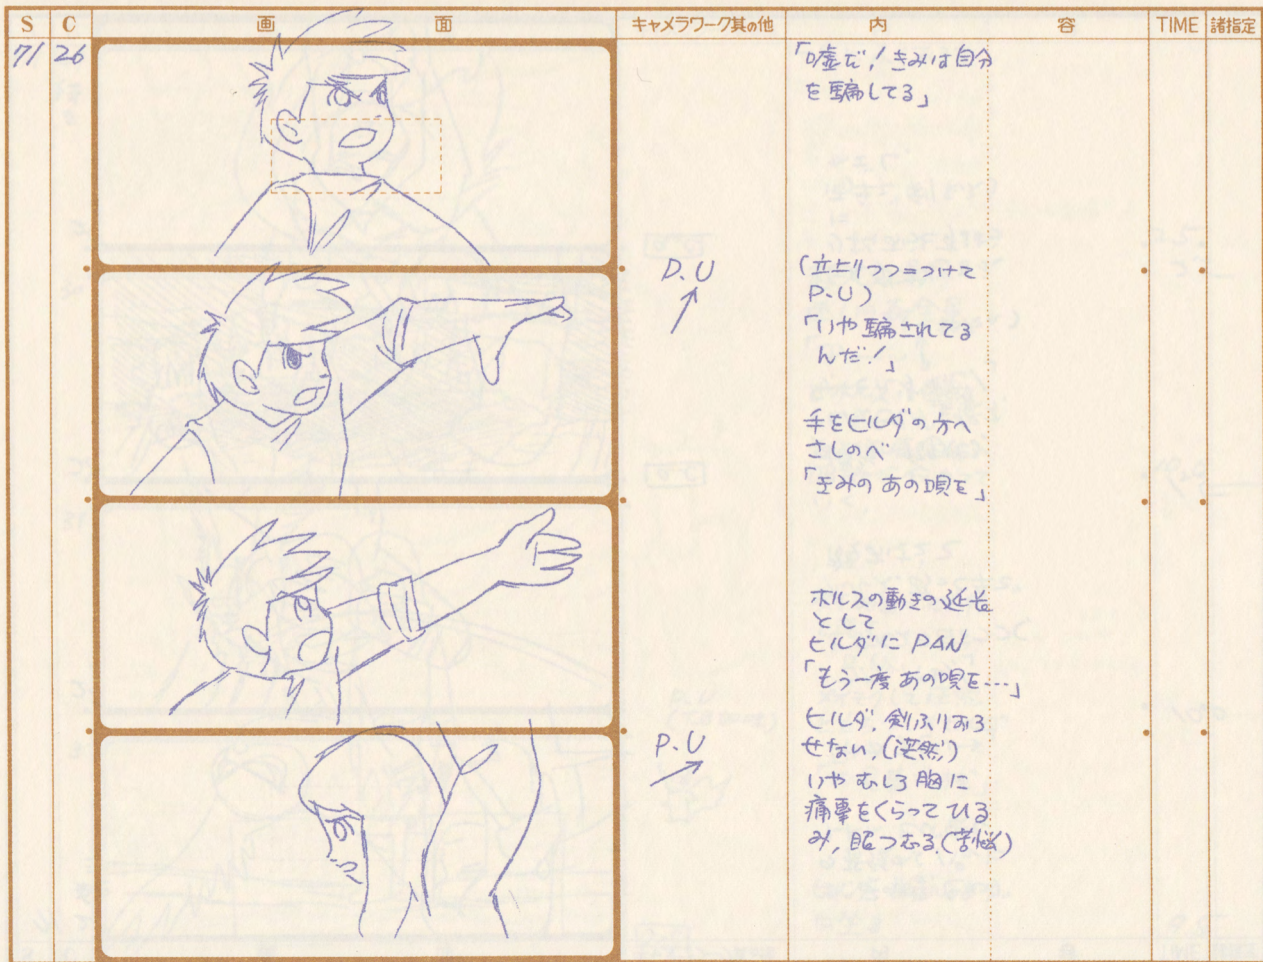 S C 画 面 キャメラワーク其の他 内 容 TIME 諸指定
71 26
「嘘だ!きみは自分
を騙してる」
P.U
(立上りつつ=つけて
P.U)
「いや騙されてる
んだ!」
手をヒルダの方へ
さしのべ
「きみの あの唄を」
ホルスの動きの延長
として
ヒルダに PAN
「もう一度 あの唄を…」
P.U
ヒルダ、剣ふりおろ
せない、(茫然)
いや むしろ 胸に
痛撃をくらって ひる
み、眼つむる、(苦悩)